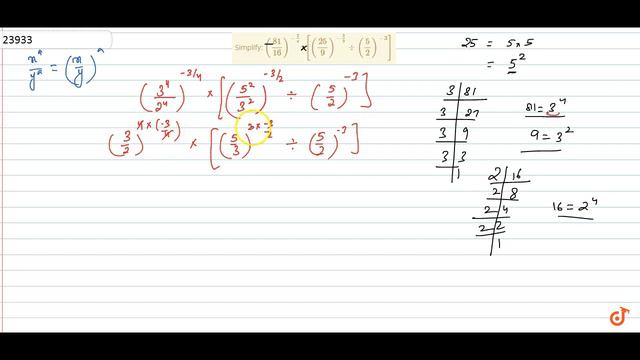 23933
Simplify: (81/16)^(-3/4) × [(25/9)^(-3/2) ÷ (5/2)^(-3)]
x^a/y^a = (x/y)^a
(3^4/2^4)^(-3/4) × [(5^2/3^2)^(-3/2) ÷ (5/2)^(-3)]
(3/2)^(4×(-3/4)) × [(5/3)^(2×-3/2) ÷ (5/2)^(-3)]
25 = 5×5
= 5^2
3 | 81
3 | 27
3 | 9
3 | 3
1
81 = 3^4
9 = 3^2
2 | 16
2 | 8
2 | 4
2 | 2
1
16 = 2^4